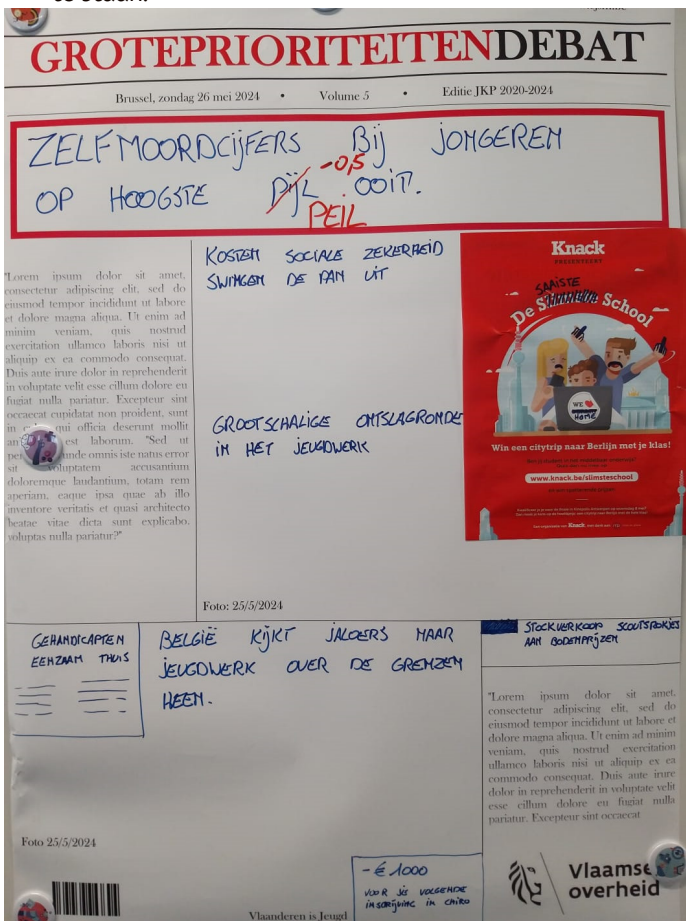 te staan.
GROTEPRIORITEITENDEBAT
Brussel, zondag 26 mei 2024 • Volume 5 • Editie JKP 2020-2024
ZELFMOORDCIJFERS Bij JONGEREN
-0,5
OP HOOGSTE PijL OOIT.
PEIL
KOSTEN SOCIALE ZEKERHEID
SWINGEN DE PAN UIT
"Lorem ipsum dolor sit amet,
consectetur adipiscing elit, sed do
eiusmod tempor incididunt ut labore
et dolore magna aliqua. Ut enim ad
minim veniam, quis nostrud
exercitation ullamco laboris nisi ut
aliquip ex ea commodo consequat.
Duis aute irure dolor in reprehenderit
in voluptate velit esse cillum dolore eu
fugiat nulla pariatur. Excepteur sint
occaecat cupidatat non proident, sunt
in qui officia deserunt mollit
an est laborum. "Sed ut
per unde omnis iste natus error
sit voluptatem accusantium
doloremque laudantium, totam rem
aperiam, eaque ipsa quae ab illo
inventore veritatis et quasi architecto
beatae vitae dicta sunt explicabo.
voluptas nulla pariatur?"
GROOTSCHALIGE ONTSLAGRONDE
IN HET JEUGDWERK
Foto: 25/5/2024
Knack
PRESENTEERT
SAAISTE
De School
WE
HOME
Win een citytrip naar Berlijn met je klas!
www.knack.be/slimsteschool
GEHANDICAPTEN
EENZAAM THUIS
BELGIË KijKT JALOERS NAAR
JEUGDWERK OVER DE GRENZEN
HEEN.
STOCKVERKOOP SCOUTSROKJES
AAN BODEMPRIJZEN
"Lorem ipsum dolor sit amet,
consectetur adipiscing elit, sed do
eiusmod tempor incididunt ut labore et
dolore magna aliqua. Ut enim ad minim
veniam, quis nostrud exercitation
ullamco laboris nisi ut aliquip ex ea
commodo consequat. Duis aute irure
dolor in reprehenderit in voluptate velit
esse cillum dolore eu fugiat nulla
pariatur. Excepteur sint occaecat
Foto 25/5/2024
- € 1000
VOOR JE VOLGENDE
INSCHRIJVING IN CHIRO
Vlaanderen is Jeugd
Vlaamse
overheid